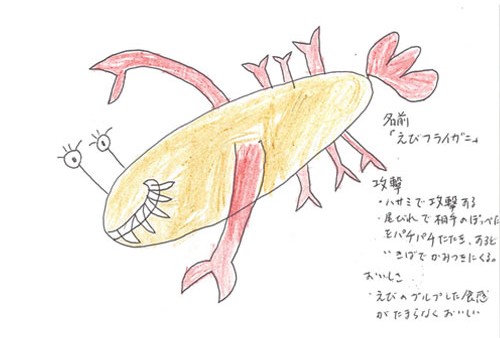 名前
「えびフライガニ」
攻撃
・ハサミで攻撃する
・尾びれで相手のほっぺた
をパチパチたたき、あと
きばでかみつきにくる。
おいしさ
・えびのプルプした食感
がたまらなくおいしい